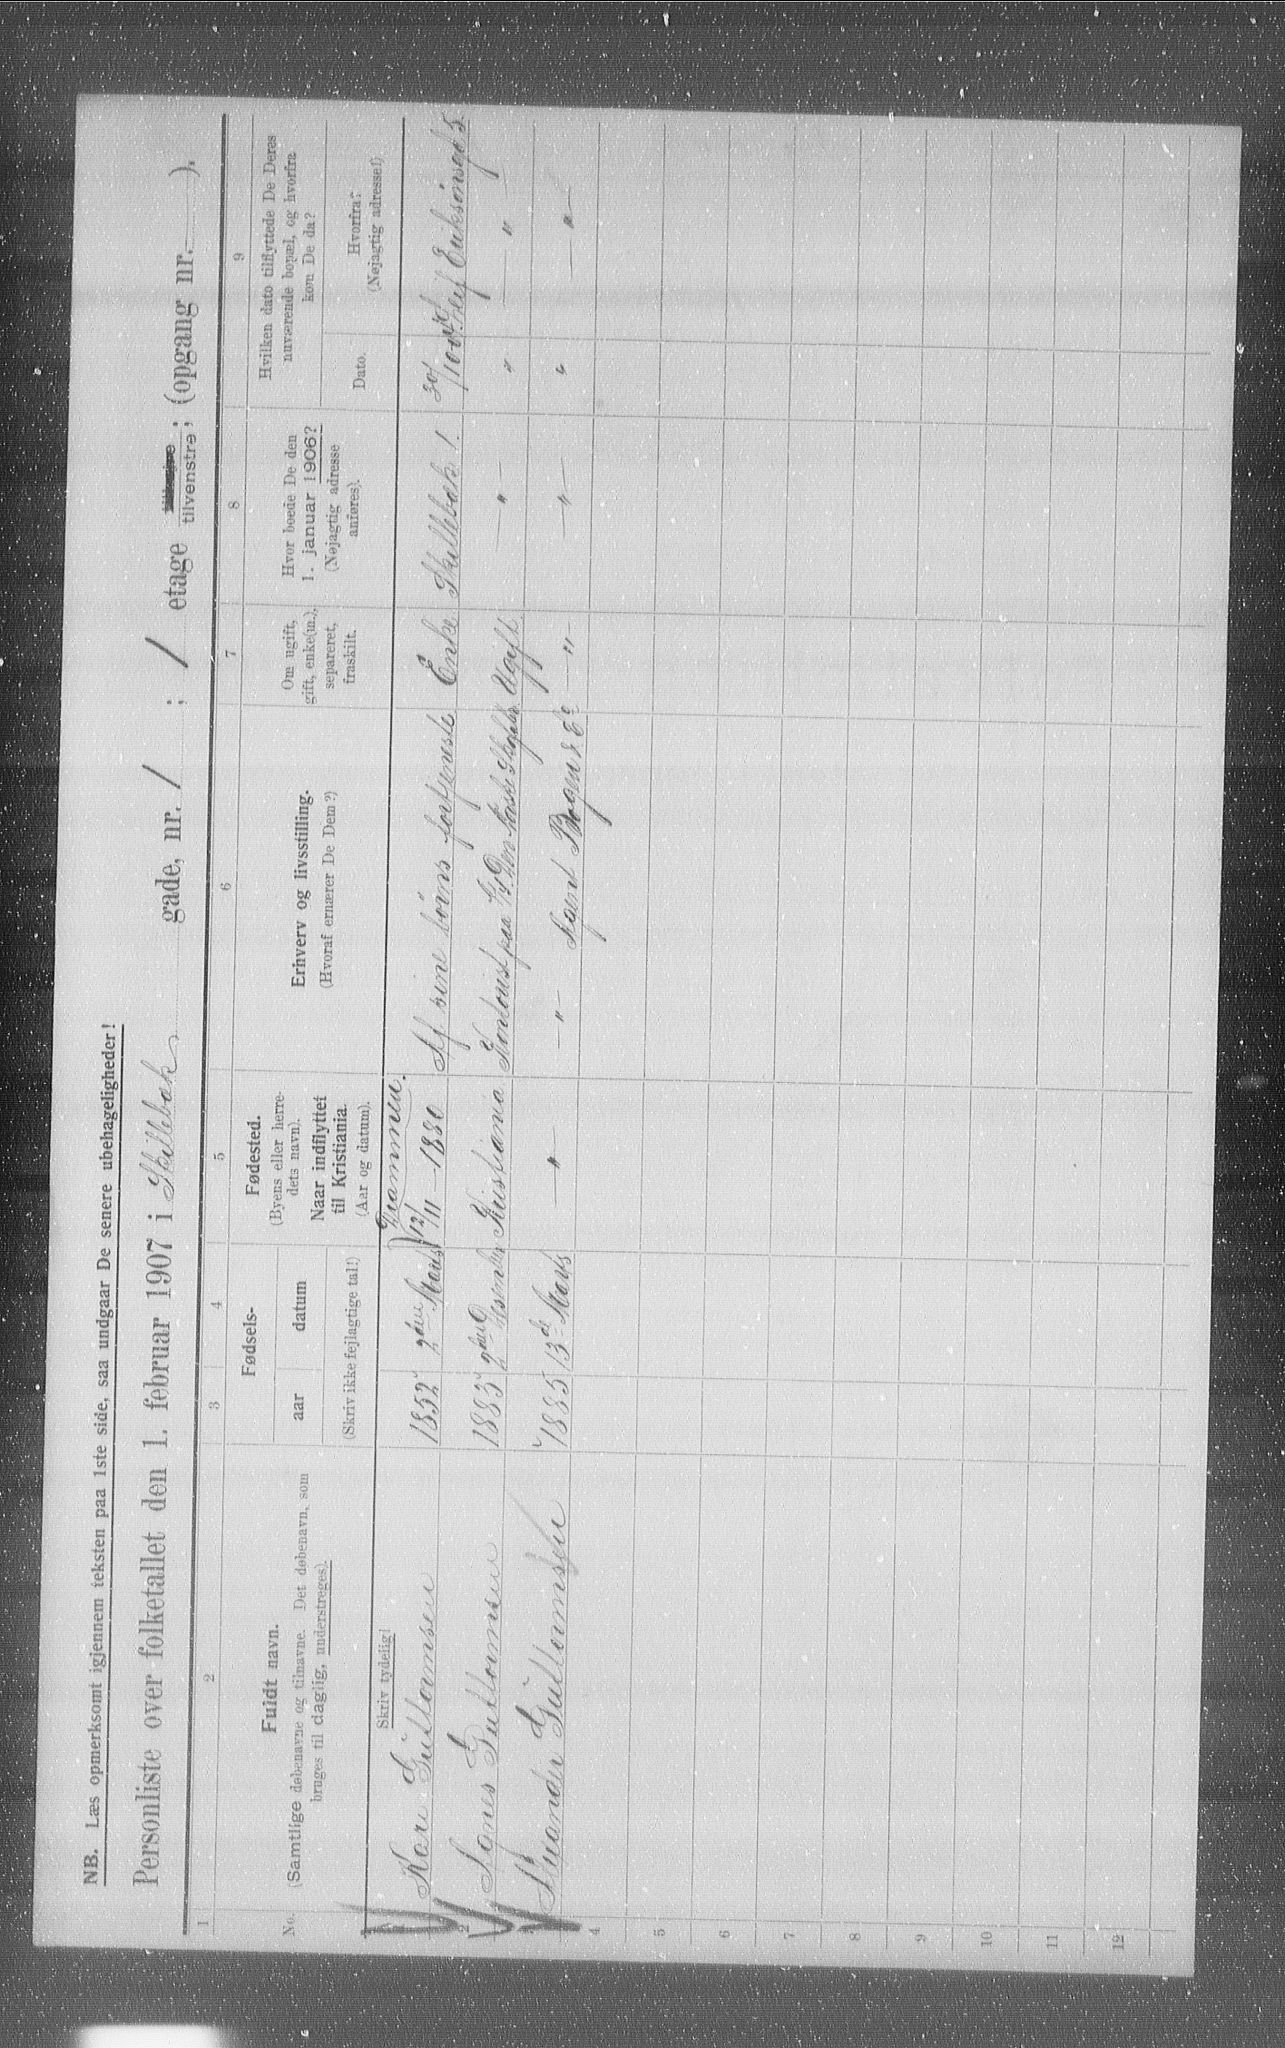 NB. Læs opmerksomt igjennem teksten paa 1ste side, saa undgaar De senere ubehageligheder!
Personliste over folketallet den 1. februar 1907 i Skillebæk gade, nr. 1 ; 1 etage tilvenstre; (opgang nr. ).
1 2 3 4 5 6 7 8 9
No.
Fuldt navn.
(Samtlige døbenavne og tilnavne. Det døbenavn, som
bruges til daglig, understreges).
Skriv tydelig!
Fødsels-
aar datum
(Skriv ikke fejlagtige tal!)
Fødested.
(Byens eller herre-
dets navn).
Naar indflyttet
til Kristiania.
(Aar og datum).
Erhverv og livsstilling.
(Hvoraf ernærer De Dem?)
Om ugift,
gift, enke(m.),
separeret,
fraskilt.
Hvor boede De den
1. januar 1906?
(Nøjagtig adresse
anføres).
Hvilken dato tilflyttede De Deres
nuværende bopæl, og hvorfra
kom De da?
Dato.
Hvorfra?
(Nøjagtig adresse!)
Drammen.
Kari Gulbransen 1852 2den Marts 12/11 - 1880 Af sine børns fortjeneste Enke Skillebæk 1. 30/10 Leif Eriksønsgd 5
2 Agnes Gulbransen 1883 2den Desember Kristiania Kontorist paa Ugift — " — " — " —
3 Gulbransen 1885 13de Marts — " — — " — Agent — " — — " — " — " —
4
5
6
7
8
9
10
11
12